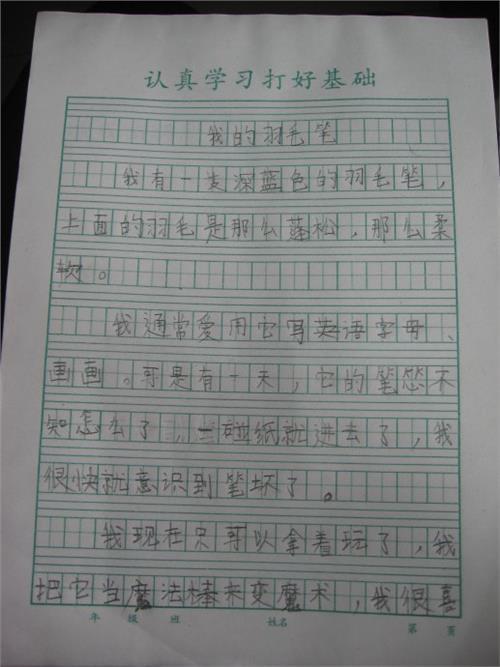 认真学习打好基础
我的羽毛笔
我有一支深蓝色的羽毛笔，
上面的羽毛是那么蓬松，那么柔
软。
我通常爱用它写英语字母、
画画。可是有一天，它的笔芯不
知怎么了，一碰纸就进去了，我
很快就意识到笔坏了。
我现在只可以拿着玩了，我
把它当魔法棒来变魔术，我很喜
年 级 班 姓名 第 页